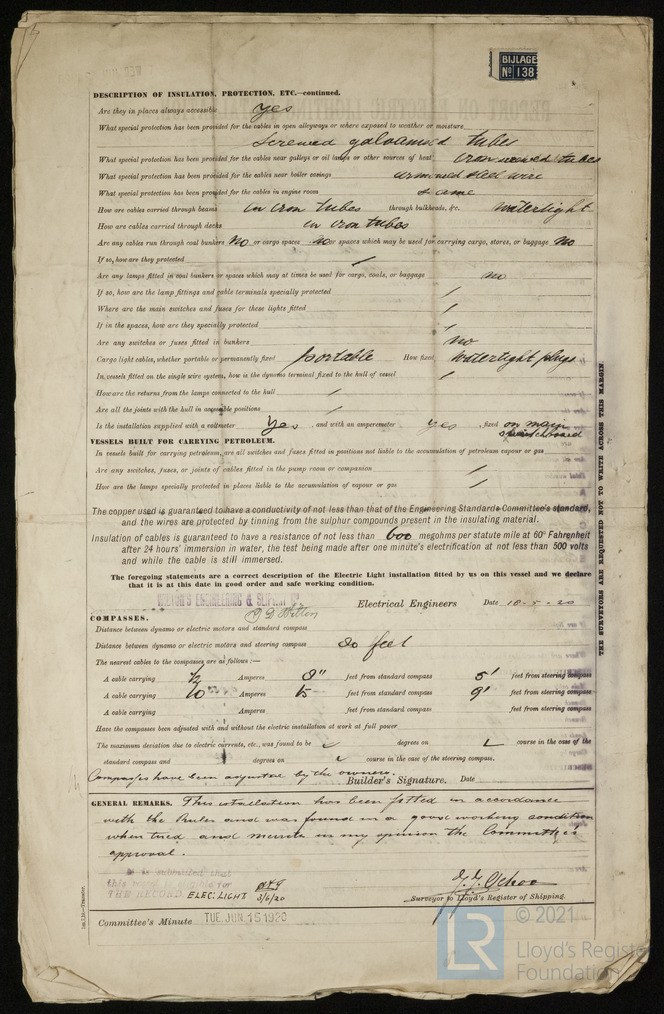 BIJLAGE
No 138
DESCRIPTION OF INSULATION, PROTECTION, ETC.—continued.
Are they in places always accessible yes
What special protection has been provided for the cables in open alleyways or where exposed to weather or moisture
screwed galvanised tubes
What special protection has been provided for the cables near galleys or oil lamps or other sources of heat iron screwed tubes
What special protection has been provided for the cables near boiler casings armoured steel wire
What special protection has been provided for the cables in engine room same
How are cables carried through beams in iron tubes through bulkheads, &c. watertight
How are cables carried through decks in iron tubes
Are any cables run through coal bunkers No or cargo spaces no or spaces which may be used for carrying cargo, stores, or baggage No
If so, how are they protected /
Are any lamps fitted in coal bunkers or spaces which may at times be used for cargo, coals, or baggage no
If so, how are the lamp fittings and cable terminals specially protected /
Where are the main switches and fuses for these lights fitted /
If in the spaces, how are they specially protected /
Are any switches or fuses fitted in bunkers no
Cargo light cables, whether portable or permanently fixed portable How fixed Watertight plugs
In vessels fitted on the single wire system, how is the dynamo terminal fixed to the hull of vessel /
How are the returns from the lamps connected to the hull /
Are all the joints with the hull in accessible positions /
Is the installation supplied with a voltmeter Yes, and with an amperemeter yes, fixed on main
switchboard
VESSELS BUILT FOR CARRYING PETROLEUM.
In vessels built for carrying petroleum, are all switches and fuses fitted in positions not liable to the accumulation of petroleum vapour or gas
Are any switches, fuses, or joints of cables fitted in the pump room or companion /
How are the lamps specially protected in places liable to the accumulation of vapour or gas /
The copper used is guaranteed to have a conductivity of not less than that of the Engineering Standards Committee's standard,
and the wires are protected by tinning from the sulphur compounds present in the insulating material.
Insulation of cables is guaranteed to have a resistance of not less than 600 megohms per statute mile at 60° Fahrenheit
after 24 hours' immersion in water, the test being made after one minute's electrification at not less than 500 volts
and while the cable is still immersed.
The foregoing statements are a correct description of the Electric Light installation fitted by us on this vessel and we declare
that it is at this date in good order and safe working condition.
ENGINEERING & SLIPWAY Electrical Engineers Date 10-5-20
COMPASSES.
Distance between dynamo or electric motors and standard compass
Distance between dynamo or electric motors and steering compass 20 feet
The nearest cables to the compasses are as follows:—
A cable carrying 1/2 Amperes 8" feet from standard compass 5' feet from steering compass
A cable carrying 10 Amperes 15 feet from standard compass 9' feet from steering compass
A cable carrying Amperes feet from standard compass feet from steering compass
Have the compasses been adjusted with and without the electric installation at work at full power
The maximum deviation due to electric currents, etc., was found to be degrees on course in the case of the
standard compass and degrees on course in the case of the steering compass.
Compasses have been adjusted by the owners. Builder's Signature. Date
GENERAL REMARKS. This installation has been fitted in accordance
with the Rules and was found in a good working condition
when tried and merits in my opinion the Committee's
approval.
It is submitted that
this
THE RECORD ELEC. LIGHT 3/6/20
Surveyor to Lloyd's Register of Shipping.
Committee's Minute TUE. JUN. 15 1920
THE SURVEYORS ARE REQUESTED NOT TO WRITE ACROSS THIS MARGIN.
LR
© 2021
Lloyd's Register
Foundation